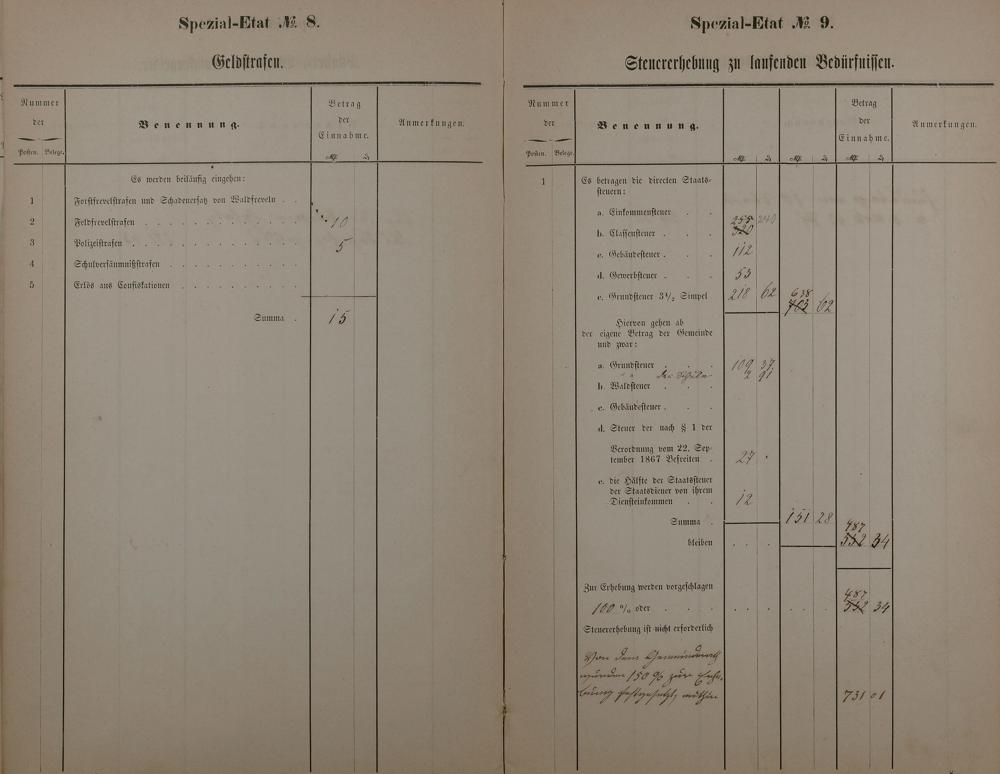 Spezial-Etat № 8.
Geldstrafen.
Nummer der
Posten. Belege.
Benennung.
Betrag der Einnahme.
ℳ ₰
Anmerkungen.
Es werden beiläufig eingehen:
1 Forstfrevelstrafen und Schadenersatz von Waldfreveln . .
2 Feldfrevelstrafen . . . . . . . . . . . 10
3 Polizeistrafen . . . . . . . . . . . . 5
4 Schulversäumnißstrafen . . . . . . . . .
5 Erlös aus Confiskationen . . . . . . . . .
Summa . 15
Spezial-Etat № 9.
Steuererhebung zu laufenden Bedürfnissen.
Nummer der
Posten. Belege.
Benennung.
Betrag der Einnahme.
ℳ ₰ ℳ ₰ ℳ ₰
Anmerkungen.
1 Es betragen die directen Staats-
steuern:
a. Einkommensteuer . . 255 240
b. Classensteuer . . . 320
c. Gebäudesteuer . . . 112
d. Gewerbsteuer . . . 53
e. Grundsteuer 3½ Simpel 218 62 638
703 62
Hiervon gehen ab
der eigene Betrag der Gemeinde
und zwar:
a. Grundsteuer . . . 109 37
" " der Schule 2 91
b. Waldsteuer . . .
c. Gebäudesteuer . . .
d. Steuer der nach § 1 der
Verordnung vom 22. Sep-
tember 1867 Befreiten . 27 .
e. die Hälfte der Staatssteuer
der Staatsdiener von ihrem
Diensteinkommen . . 12
Summa . 151 28
487
bleiben . . . 552 34
Zur Erhebung werden vorgeschlagen
487
100 % oder . . . . . . . . . 552 34
Steuererhebung ist nicht erforderlich
Von dem Gemeinderath
wurden 150 % zur Erhe-
bung festgesetzt, mithin 731 01